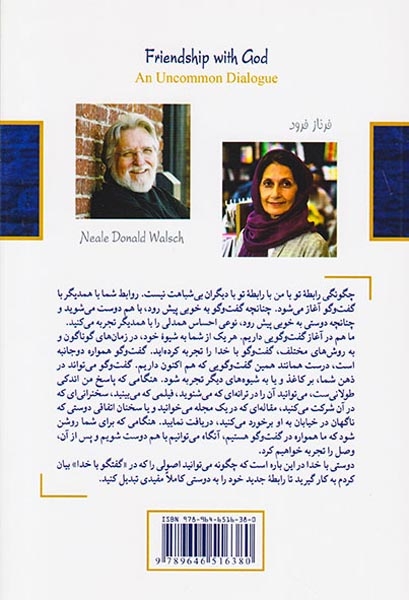 Friendship with God
An Uncommon Dialogue
فرناز فرود
Neale Donald Walsch
چگونگی رابطهٔ تو با من با رابطهٔ تو با دیگران بی‌شباهت نیست. روابط شما با همدیگر با
گفت‌وگو آغاز می‌شود. چنانچه گفت‌وگو به خوبی پیش رود، با هم دوست می‌شوید و
چنانچه دوستی به خوبی پیش رود، نوعی احساس همدلی را با همدیگر تجربه می‌کنید.
ما هم در آغاز گفت‌وگویی داریم. هر یک از شما به شیوهٔ خود، در زمان‌های گوناگون و
به روش‌های مختلف، گفت‌وگو با خدا را تجربه کرده‌اید. گفت‌وگو همواره دوجانبه
است، درست همانند همین گفت‌وگویی که هم اکنون داریم. گفت‌وگو می‌تواند در
ذهن شما، بر کاغذ و یا به شیوه‌های دیگر تجربه شود. هنگامی که پاسخ من اندکی
طولانی‌ست، می‌توانید آن را در ترانه‌ای که می‌شنوید، فیلمی که می‌بینید، سخنرانی‌ای که
در آن شرکت می‌کنید، مقاله‌ای که در یک مجله می‌خوانید و یا سخنان اتفاقی دوستی که
ناگهان در خیابان به او برخورد می‌کنید، دریافت نمایید. هنگامی که برای شما روشن
شود که ما همواره در گفت‌وگو هستیم، آنگاه می‌توانیم با هم دوست شویم و پس از آن،
وصل را تجربه خواهیم کرد.
دوستی با خدا در این باره است که چگونه می‌توانید اصولی را که در «گفتگو با خدا» بیان
کردم به کار گیرید تا رابطهٔ جدید خود را به دوستی کاملاً مفیدی تبدیل کنید.
ISBN 978-964-6516-38-0
9 789646 516380